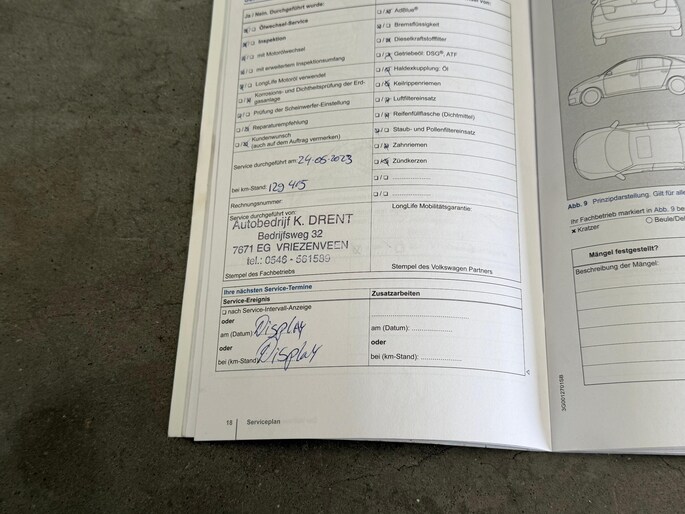 Ja / Nein, Durchgeführt wurde:
Ölwechsel-Service
Inspektion
mit Motorölwechsel
mit erweitertem Inspektionsumfang
LongLife Motoröl verwendet
Korrosions- und Dichtheitsprüfung der Erd-
gasanlage
Prüfung der Scheinwerfer-Einstellung
Reparaturempfehlung
Kundenwunsch
(auch auf dem Auftrag vermerken)
Service durchgeführt am: 24-05-2023
bei km-Stand: 129 415
Rechnungsnummer:
Service durchgeführt von:
Autobedrijf K. DRENT
Bedrijfsweg 32
7671 EG VRIEZENVEEN
tel.: 0546 - 561589
Stempel des Fachbetriebs
AdBlue®
Bremsflüssigkeit
Dieselkraftstofffilter
Getriebeöl: DSG®, ATF
Haldexkupplung: Öl
Keilrippenriemen
Luftfiltereinsatz
Reifenfüllflasche (Dichtmittel)
Staub- und Pollenfiltereinsatz
Zahnriemen
Zündkerzen
LongLife Mobilitätsgarantie:
Stempel des Volkswagen Partners
Ihre nächsten Service-Termine
Service-Ereignis
Zusatzarbeiten
nach Service-Intervall-Anzeige
oder
am (Datum): Display
oder
bei (km-Stand): Display
am (Datum):
oder
bei (km-Stand):
18 Serviceplan
Abb. 9 Prinzipdarstellung. Gilt für alle
Ihr Fachbetrieb markiert in Abb. 9 be
x Kratzer
Beule/Del
Mängel festgestellt?
Beschreibung der Mängel:
3G0012701SB